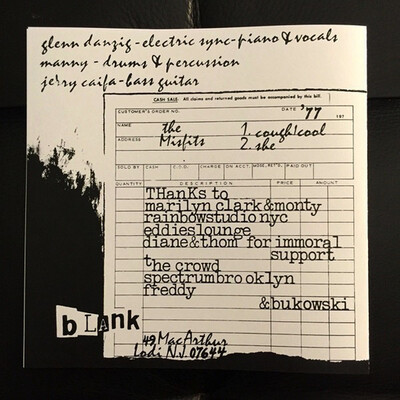 glenn danzig - electric sync-piano & vocals
manny - drums & percussion
jerry caifa - bass guitar
CASH SALE All claims and returned goods must be accompanied by this bill.
CUSTOMER'S ORDER NO. DATE '77 197
NAME the 1. cough!cool
ADDRESS Misfits 2. she
SOLD BY CASH C.O.D. CHARGE ON ACCT. MDSE. RET'D. PAID OUT
QUANTITY DESCRIPTION PRICE AMOUNT
THanKs to
marilyn clark&monty
rainbowstudio nyc
eddieslounge
diane&thom for immoral
support
the crowd
spectrumbro oklyn
freddy
&bukowski
bLAnk
49 MacArthur
Lodi N.J. 07644